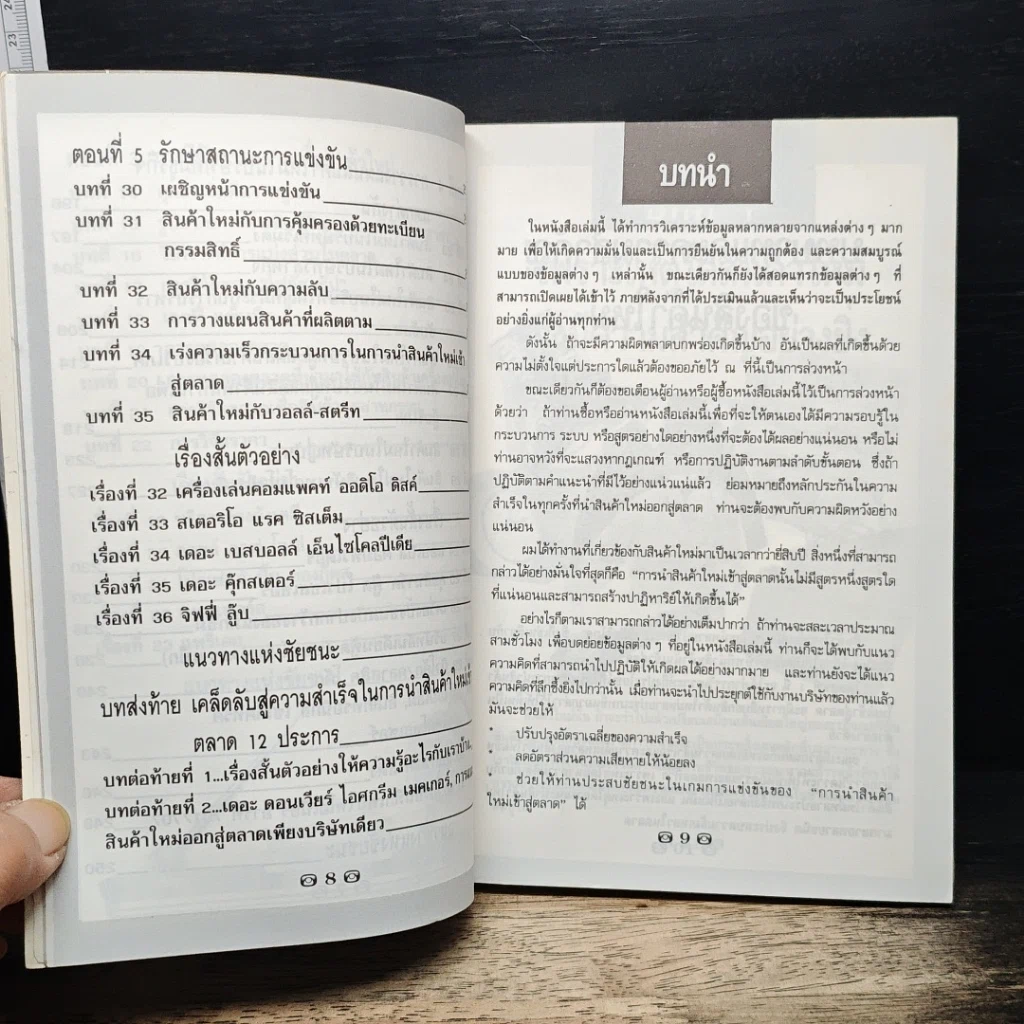 ตอนที่ 5 รักษาสถานะการแข่งขัน
บทที่ 30 เผชิญหน้าการแข่งขัน
บทที่ 31 สินค้าใหม่กับการคุ้มครองด้วยทะเบียน
กรรมสิทธิ์
บทที่ 32 สินค้าใหม่กับความลับ
บทที่ 33 การวางแผนสินค้าที่ผลิตตาม
บทที่ 34 เร่งความเร็วกระบวนการในการนำสินค้าใหม่เข้า
สู่ตลาด
บทที่ 35 สินค้าใหม่กับวอลล์-สตรีท
เรื่องสั้นตัวอย่าง
เรื่องที่ 32 เครื่องเล่นคอมแพคท์ ออดิโอ ดิสค์
เรื่องที่ 33 สเตอริโอ แรค ซิสเต็ม
เรื่องที่ 34 เดอะ เบสบอลล์ เอ็นไซโคลปีเดีย
เรื่องที่ 35 เดอะ คุ๊กสเตอร์
เรื่องที่ 36 จิฟฟี่ ลู๊บ
แนวทางแห่งชัยชนะ
บทส่งท้าย เคล็ดลับสู่ความสำเร็จในการนำสินค้าใหม่
ตลาด 12 ประการ
บทต่อท้ายที่ 1...เรื่องสั้นตัวอย่างให้ความรู้อะไรกับเราบ้าง
บทต่อท้ายที่ 2...เดอะ ดอนเวียร์ ไอศกรีม เมคเกอร์,
สินค้าใหม่ออกสู่ตลาดเพียงบริษัทเดียว
8
บทนำ
ในหนังสือเล่มนี้ ได้ทำการวิเคราะห์ข้อมูลหลากหลายจากแหล่งต่าง ๆ มาก
มาย เพื่อให้เกิดความมั่นใจและเป็นการยืนยันในความถูกต้อง และความสมบูรณ์
แบบของข้อมูลต่าง ๆ เหล่านั้น ขณะเดียวกันก็ยังได้สอดแทรกข้อมูลต่าง ๆ ที่
สามารถเปิดเผยได้เข้าไว้ ภายหลังจากที่ได้ประเมินแล้วและเห็นว่าจะเป็นประโยชน์
อย่างยิ่งแก่ผู้อ่านทุกท่าน
ดังนั้น ถ้าจะมีความผิดพลาดบกพร่องเกิดขึ้นบ้าง อันเป็นผลที่เกิดขึ้นด้วย
ความไม่ตั้งใจแต่ประการใดแล้วต้องขออภัยไว้ ณ ที่นี้เป็นการล่วงหน้า
ขณะเดียวกันก็ต้องขอเตือนผู้อ่านหรือผู้ซื้อหนังสือเล่มนี้ไว้เป็นการล่วงหน้า
ด้วยว่า ถ้าท่านซื้อหรืออ่านหนังสือเล่มนี้เพื่อที่จะให้ตนเองได้มีความรอบรู้ใน
กระบวนการ ระบบ หรือสูตรอย่างใดอย่างหนึ่งที่จะต้องได้ผลอย่างแน่นอน หรือไม่
ท่านอาจหวังที่จะแสวงหากฎเกณฑ์ หรือการปฏิบัติงานตามลำดับขั้นตอน ซึ่งถ้า
ปฏิบัติตามคำแนะนำที่มีไว้อย่างแน่วแน่แล้ว ย่อมหมายถึงหลักประกันในความ
สำเร็จในทุกครั้งที่นำสินค้าใหม่ออกสู่ตลาด ท่านจะต้องพบกับความผิดหวังอย่าง
แน่นอน
ผมได้ทำงานที่เกี่ยวข้องกับสินค้าใหม่มาเป็นเวลากว่ายี่สิบปี สิ่งหนึ่งที่สามารถ
กล่าวได้อย่างมั่นใจที่สุดก็คือ “การนำสินค้าใหม่เข้าสู่ตลาดนั้นไม่มีสูตรหนึ่งสูตรใด
ที่แน่นอนและสามารถสร้างปาฏิหาริย์ให้เกิดขึ้นได้”
อย่างไรก็ตามเราสามารถกล่าวได้อย่างเต็มปากว่า ถ้าท่านจะสละเวลาประมาณ
สามชั่วโมง เพื่อบดย่อยข้อมูลต่าง ๆ ที่อยู่ในหนังสือเล่มนี้ ท่านก็จะได้พบกับแนว
ความคิดที่สามารถนำไปปฏิบัติให้เกิดผลได้อย่างมากมาย และท่านยังจะได้แนว
ความคิดที่ลึกซึ้งยิ่งไปกว่านั้น เมื่อท่านจะนำไปประยุกต์ใช้กับงานบริษัทของท่านแล้ว
มันจะช่วยให้
* ปรับปรุงอัตราเฉลี่ยของความสำเร็จ
* ลดอัตราส่วนความเสียหายให้น้อยลง
* ช่วยให้ท่านประสบชัยชนะในเกมการแข่งขันของ “การนำสินค้า
ใหม่เข้าสู่ตลาด” ได้
9